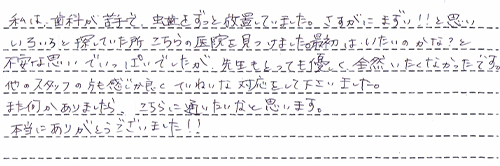 私は、歯科が苦手で、虫歯をずっと放置していました。さすがにまずい!!と思い
いろいろと探していた所こちらの医院を見つけました。最初はいたいのかな?と
不安な思いでいっぱいでしたが、先生もとっても優しく全然いたくなかったです。
他のスタッフの方も感じが良くていねいな対応をして下さいました。
また何かありましたら、こちらに通いたいなと思います。
本当にありがとうございました!!